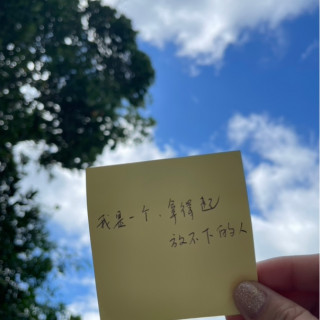 我是一个、拿得起
放不下的人